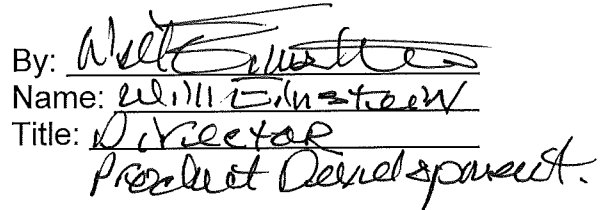 By: Will Einstein
Name: Will Einstein
Title: Director
Product Development.